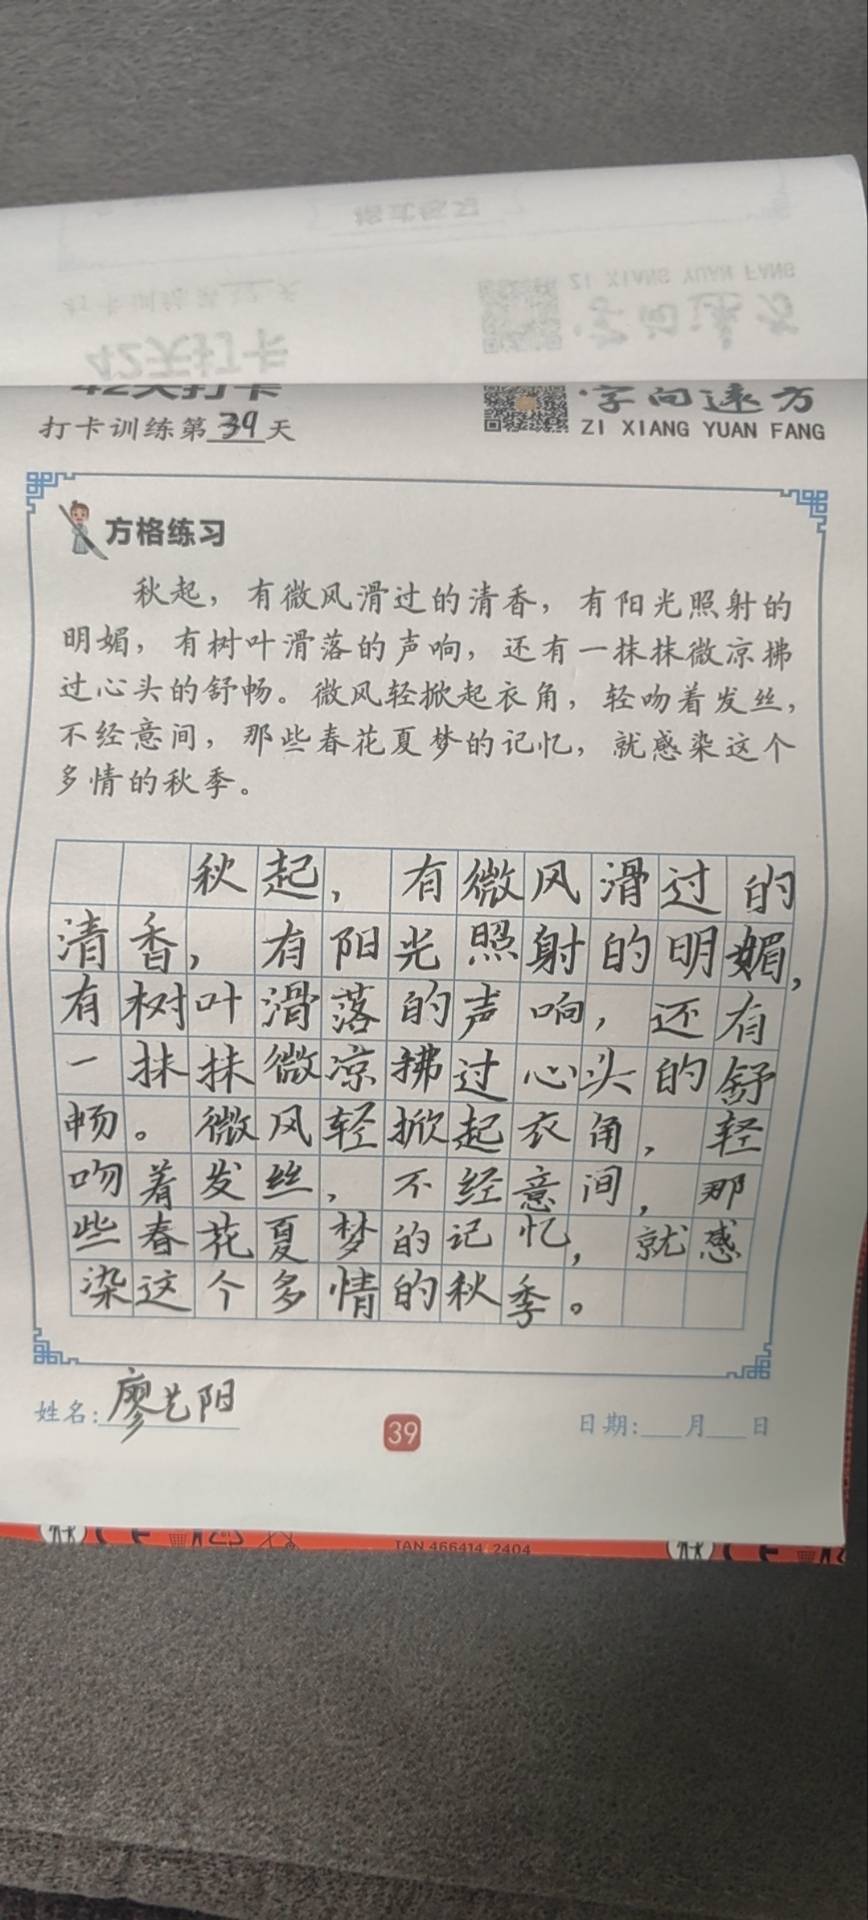 42天打卡
打卡训练第39天
字向远方
ZI XIANG YUAN FANG
方格练习
秋起，有微风滑过的清香，有阳光照射的
明媚，有树叶滑落的声响，还有一抹抹微凉拂
过心头的舒畅。微风轻掀起衣角，轻吻着发丝，
不经意间，那些春花夏梦的记忆，就感染这个
多情的秋季。
秋起，有微风滑过的
清香，有阳光照射的明媚，
有树叶滑落的声响，还有
一抹抹微凉拂过心头的舒
畅。微风轻掀起衣角，轻
吻着发丝，不经意间，那
些春花夏梦的记忆，就感
染这个多情的秋季。
姓名：廖艺阳
39
日期：___月___日
TAN 466414 2404